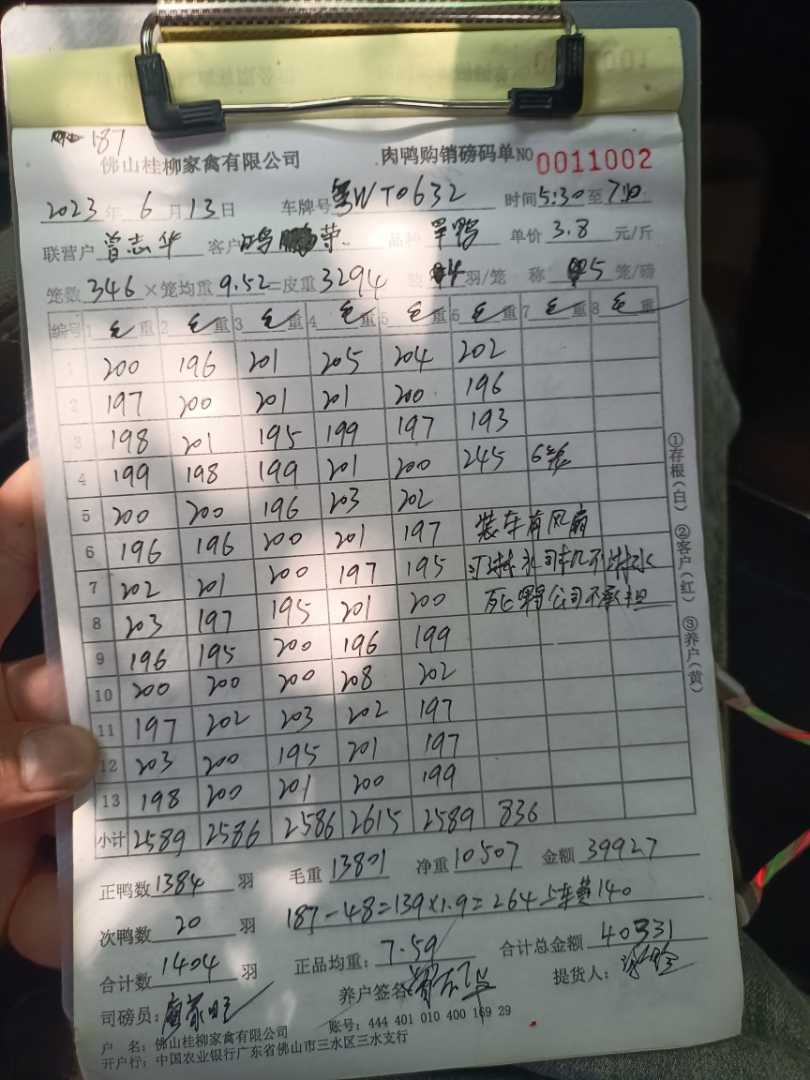 187
佛山桂柳家禽有限公司 肉鸭购销磅码单 NO 0011002
2023年 6月13日 车牌号 粤WT0632 时间5:30至7:10
联营户 曾志华 客户 鸿鹏荣 品种 旱鸭 单价 3.8 元/斤
笼数 346 ×笼均重 9.52 =皮重 3294 装 4 羽/笼 称 5 笼/磅
编号 1 毛重 2 毛重 3 毛重 4 毛重 5 毛重 6 毛重 7 毛重 8 毛重
1 200 196 201 205 204 202
2 197 200 201 201 200 196
3 198 201 195 199 197 193
4 199 198 199 201 200 245 6笼
5 200 200 196 203 202
6 196 196 200 201 197 装车有风扇
7 202 201 200 197 195 淋水司机不淋水
8 203 197 195 201 200 死鸭公司不承担
9 196 195 200 196 199
10 200 200 200 208 202
11 197 202 203 202 197
12 203 200 195 201 197
13 198 200 201 200 199
小计 2589 2586 2586 2615 2589 836
①存根(白) ②客户(红) ③养户(黄)
正鸭数 1384 羽 毛重 13801 净重 10507 金额 39927
次鸭数 20 羽 187-48=139×1.9=264 上车费140
合计数 1404 羽 正品均重: 7.59 合计总金额 40331
司磅员: 养户签名 提货人:
户 名: 佛山桂柳家禽有限公司 账号: 444 401 010 400 169 29
开户行: 中国农业银行广东省佛山市三水区三水支行